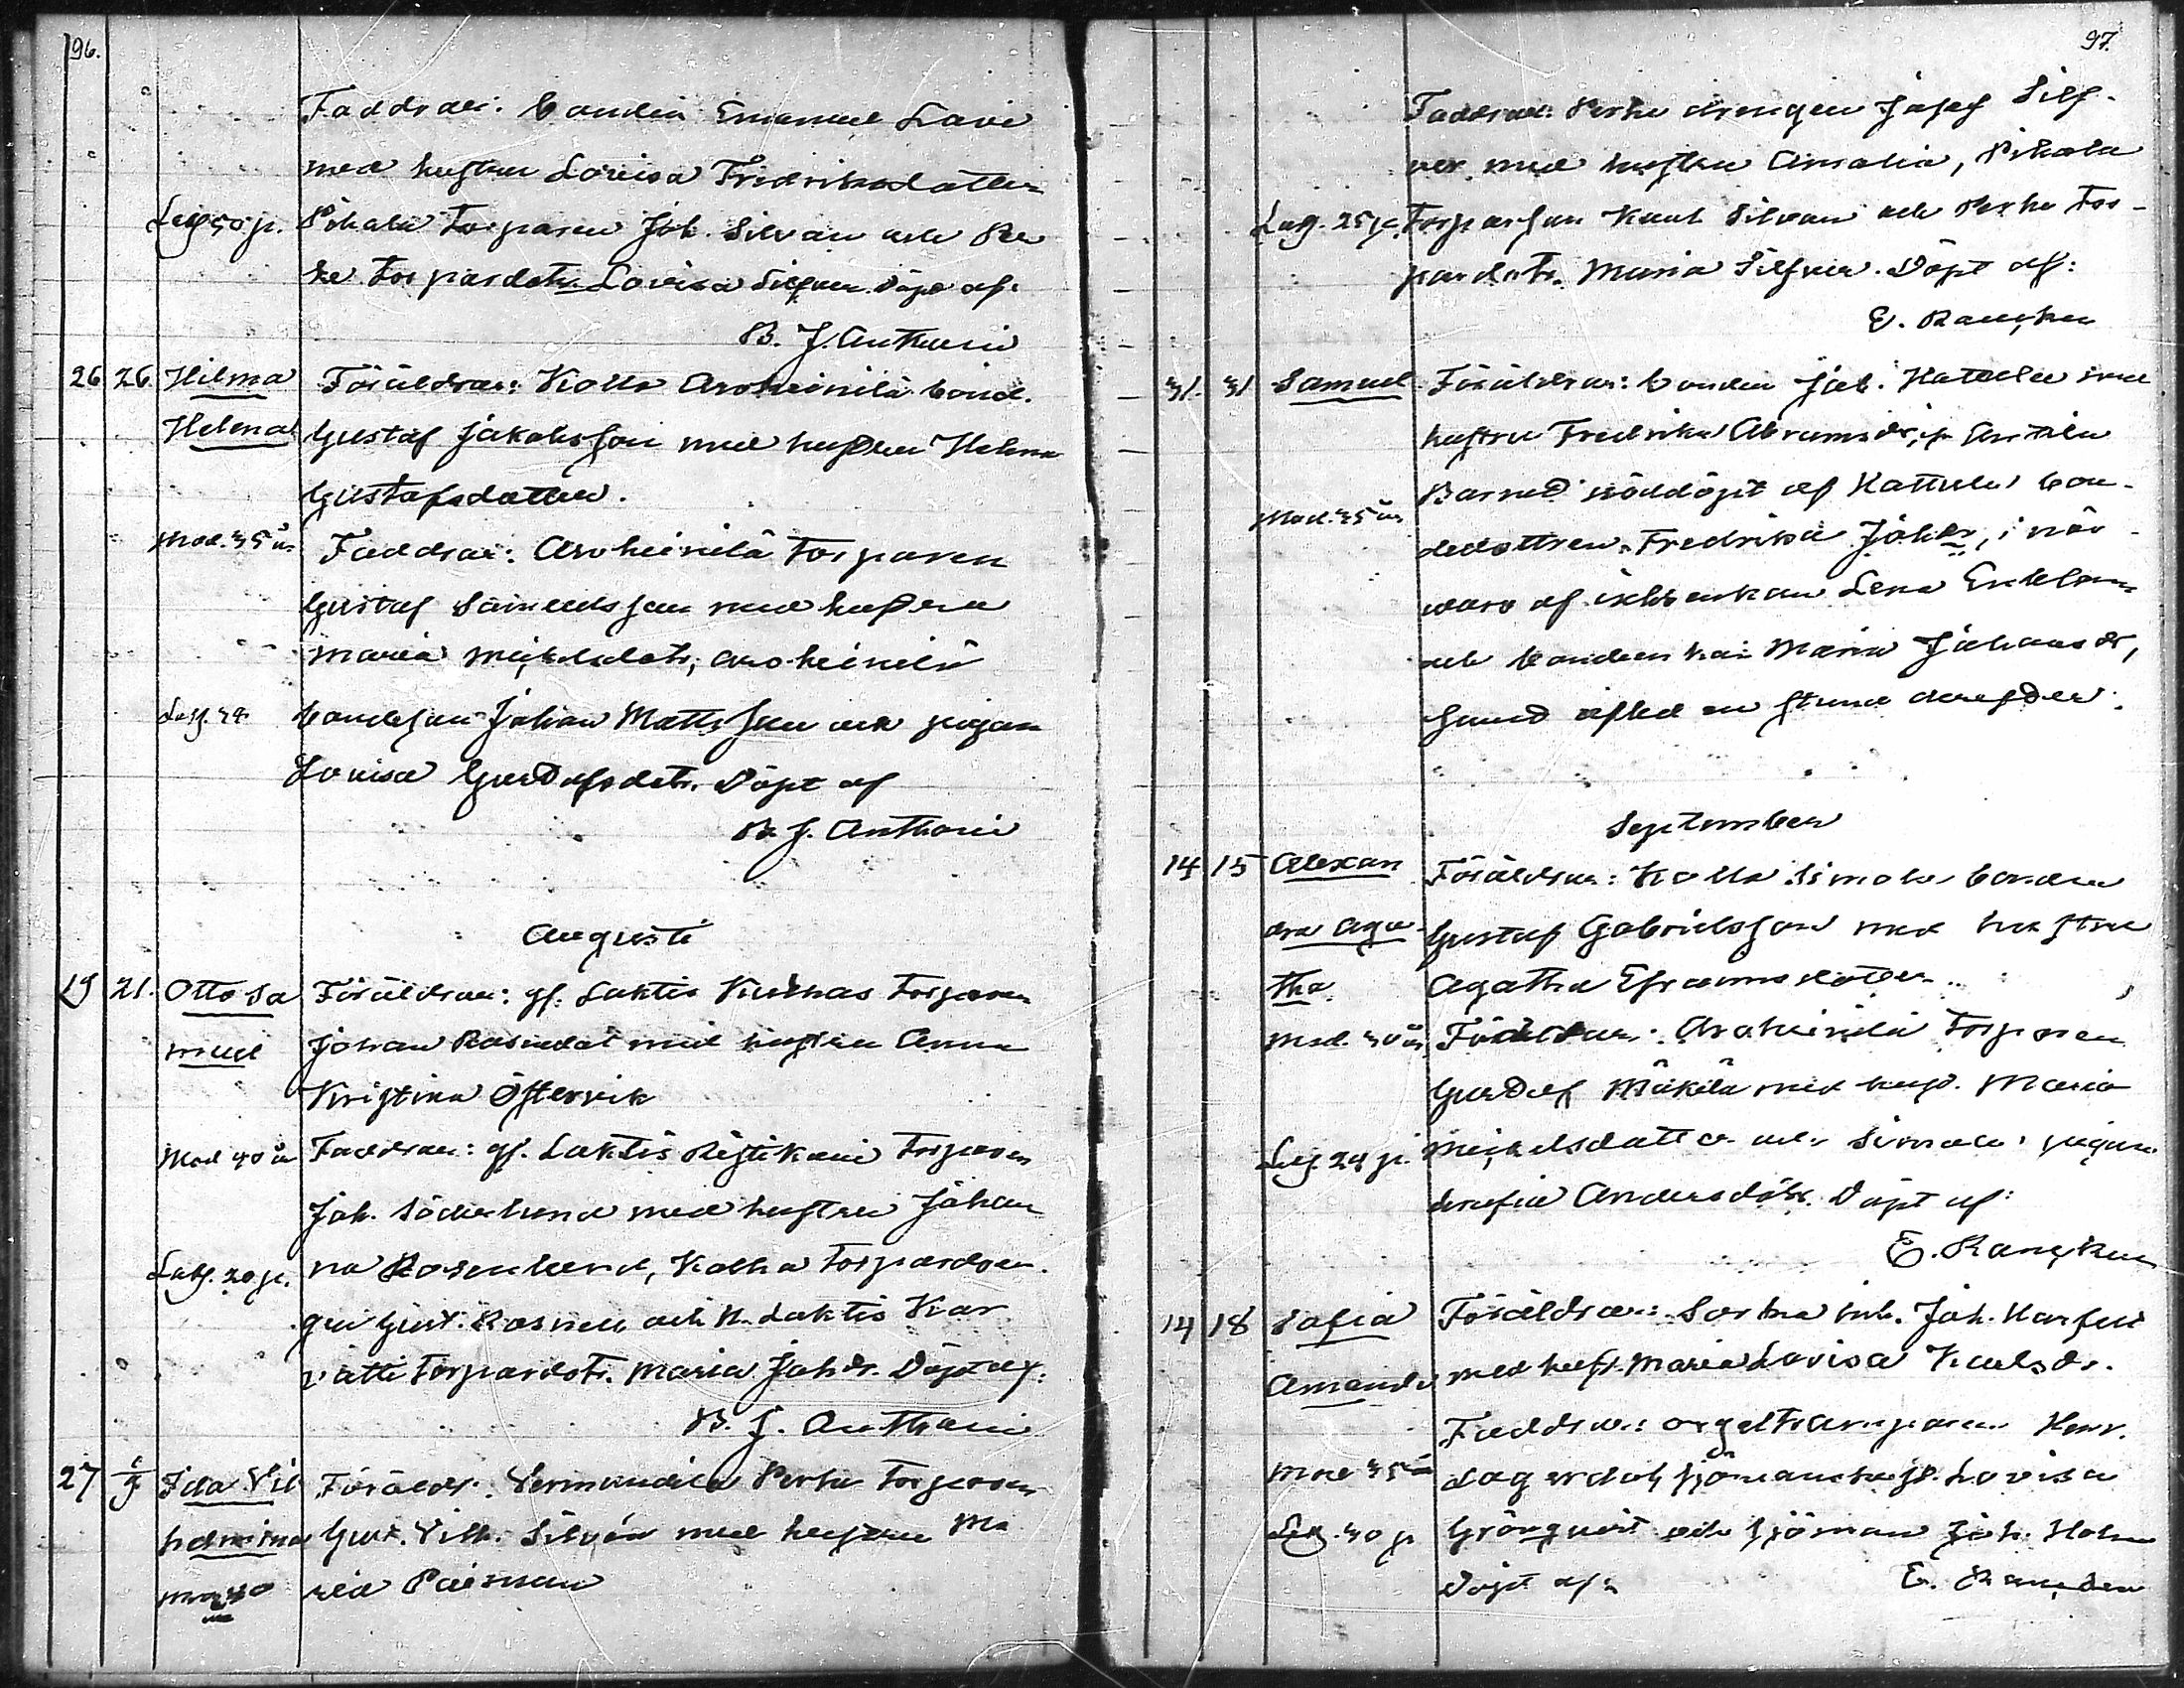 96.
Faddrar: bonden Emanuel Lavi
med hustru Lovisa Fredriksdotter
Legg 50 p. Pihala torparen Joh. Silvan och Per
ke torpardotr. Lovisa Silfver. Döpt af:
B. J. Anthoni
26 26 Hilma Föräldrar: Kolla Aroheinilä bond.
Helena Gustaf Jakobsson med hustru Helena
Gustafsdotter.
Mod. 35 år Faddrar: Aroheinilä torparen
Gustaf Samuelsson med hustru
Maria Mickelsdotr, Aroheinilä
Legg. bondeson Johan Mattsson och pigan
Lovisa Gustafsdotr. Döpt af
B. J. Anthoni
Augusti
19 21. Otto Sa Föräldrar: gf. Laktis torparen
muel Johan med hustru Anna
Kristina Östervik
Mod 40 år Faddrar: gf. Laktis Ristikani torparen
Joh. Söderlund med hustru Johan
Legg. 20 p. na Rosenlund, Kolka torpardren.
gen Gust. Rosnell och N. Laktis Kar
vatti torpardotr. Maria Johdr. Döpt af:
B. J. Anthoni
27 1/9 Ida Vil Föräldr: Vermundila Perho torparen
helmina Gust. Vilh. Silvén med hustru Ma
Mod 40 ria Paiman
97.
Faddrar: Perho drengen Josef Silf-
ver med hustru Amalia, Pihala
Legg. 25 p. torparson Karl Silvan och Perho tor-
pardotr. Maria Silfver. Döpt af:
E. Rancken
31. 31 Samuel Föräldrar: bonden Jab. Hattula med
hustru Fredrika Abramsdr, fr Anttila
Barnet nöddöpt af Hattula bon-
Mod. 35 år dedottren Fredrika Johdr, i när-
varo af enkan Lena
och bondenkan Maria Johansdr,
samt afled en stund derefter.
September
14 15 Alexan Föräldrar: Kolla Simola bonden
dra Aga- Gustaf Gabrielsson med hustru
tha Agatha Efraimsdotter.
Mod. 30 år Föräldrar: Aroheinilä torparen
Gustaf Mäkelä med hust. Maria
Legg 24 p. Mickelsdotter och Simola pigan
Serafia Andersdotr. Döpt af:
E. Rancken
14 18 Sofia Föräldrar: inh. Joh. Karlsson
Amanda med hust. Maria Lovisa Karlsdr.
Faddrar: orgeltramparen Henr.
Mod 35 år Lagerdahl sjömanshust. Lovisa
Legg. 30 p Grönqvist och sjöman Joh. Holm
Döpt af: E. Rancken